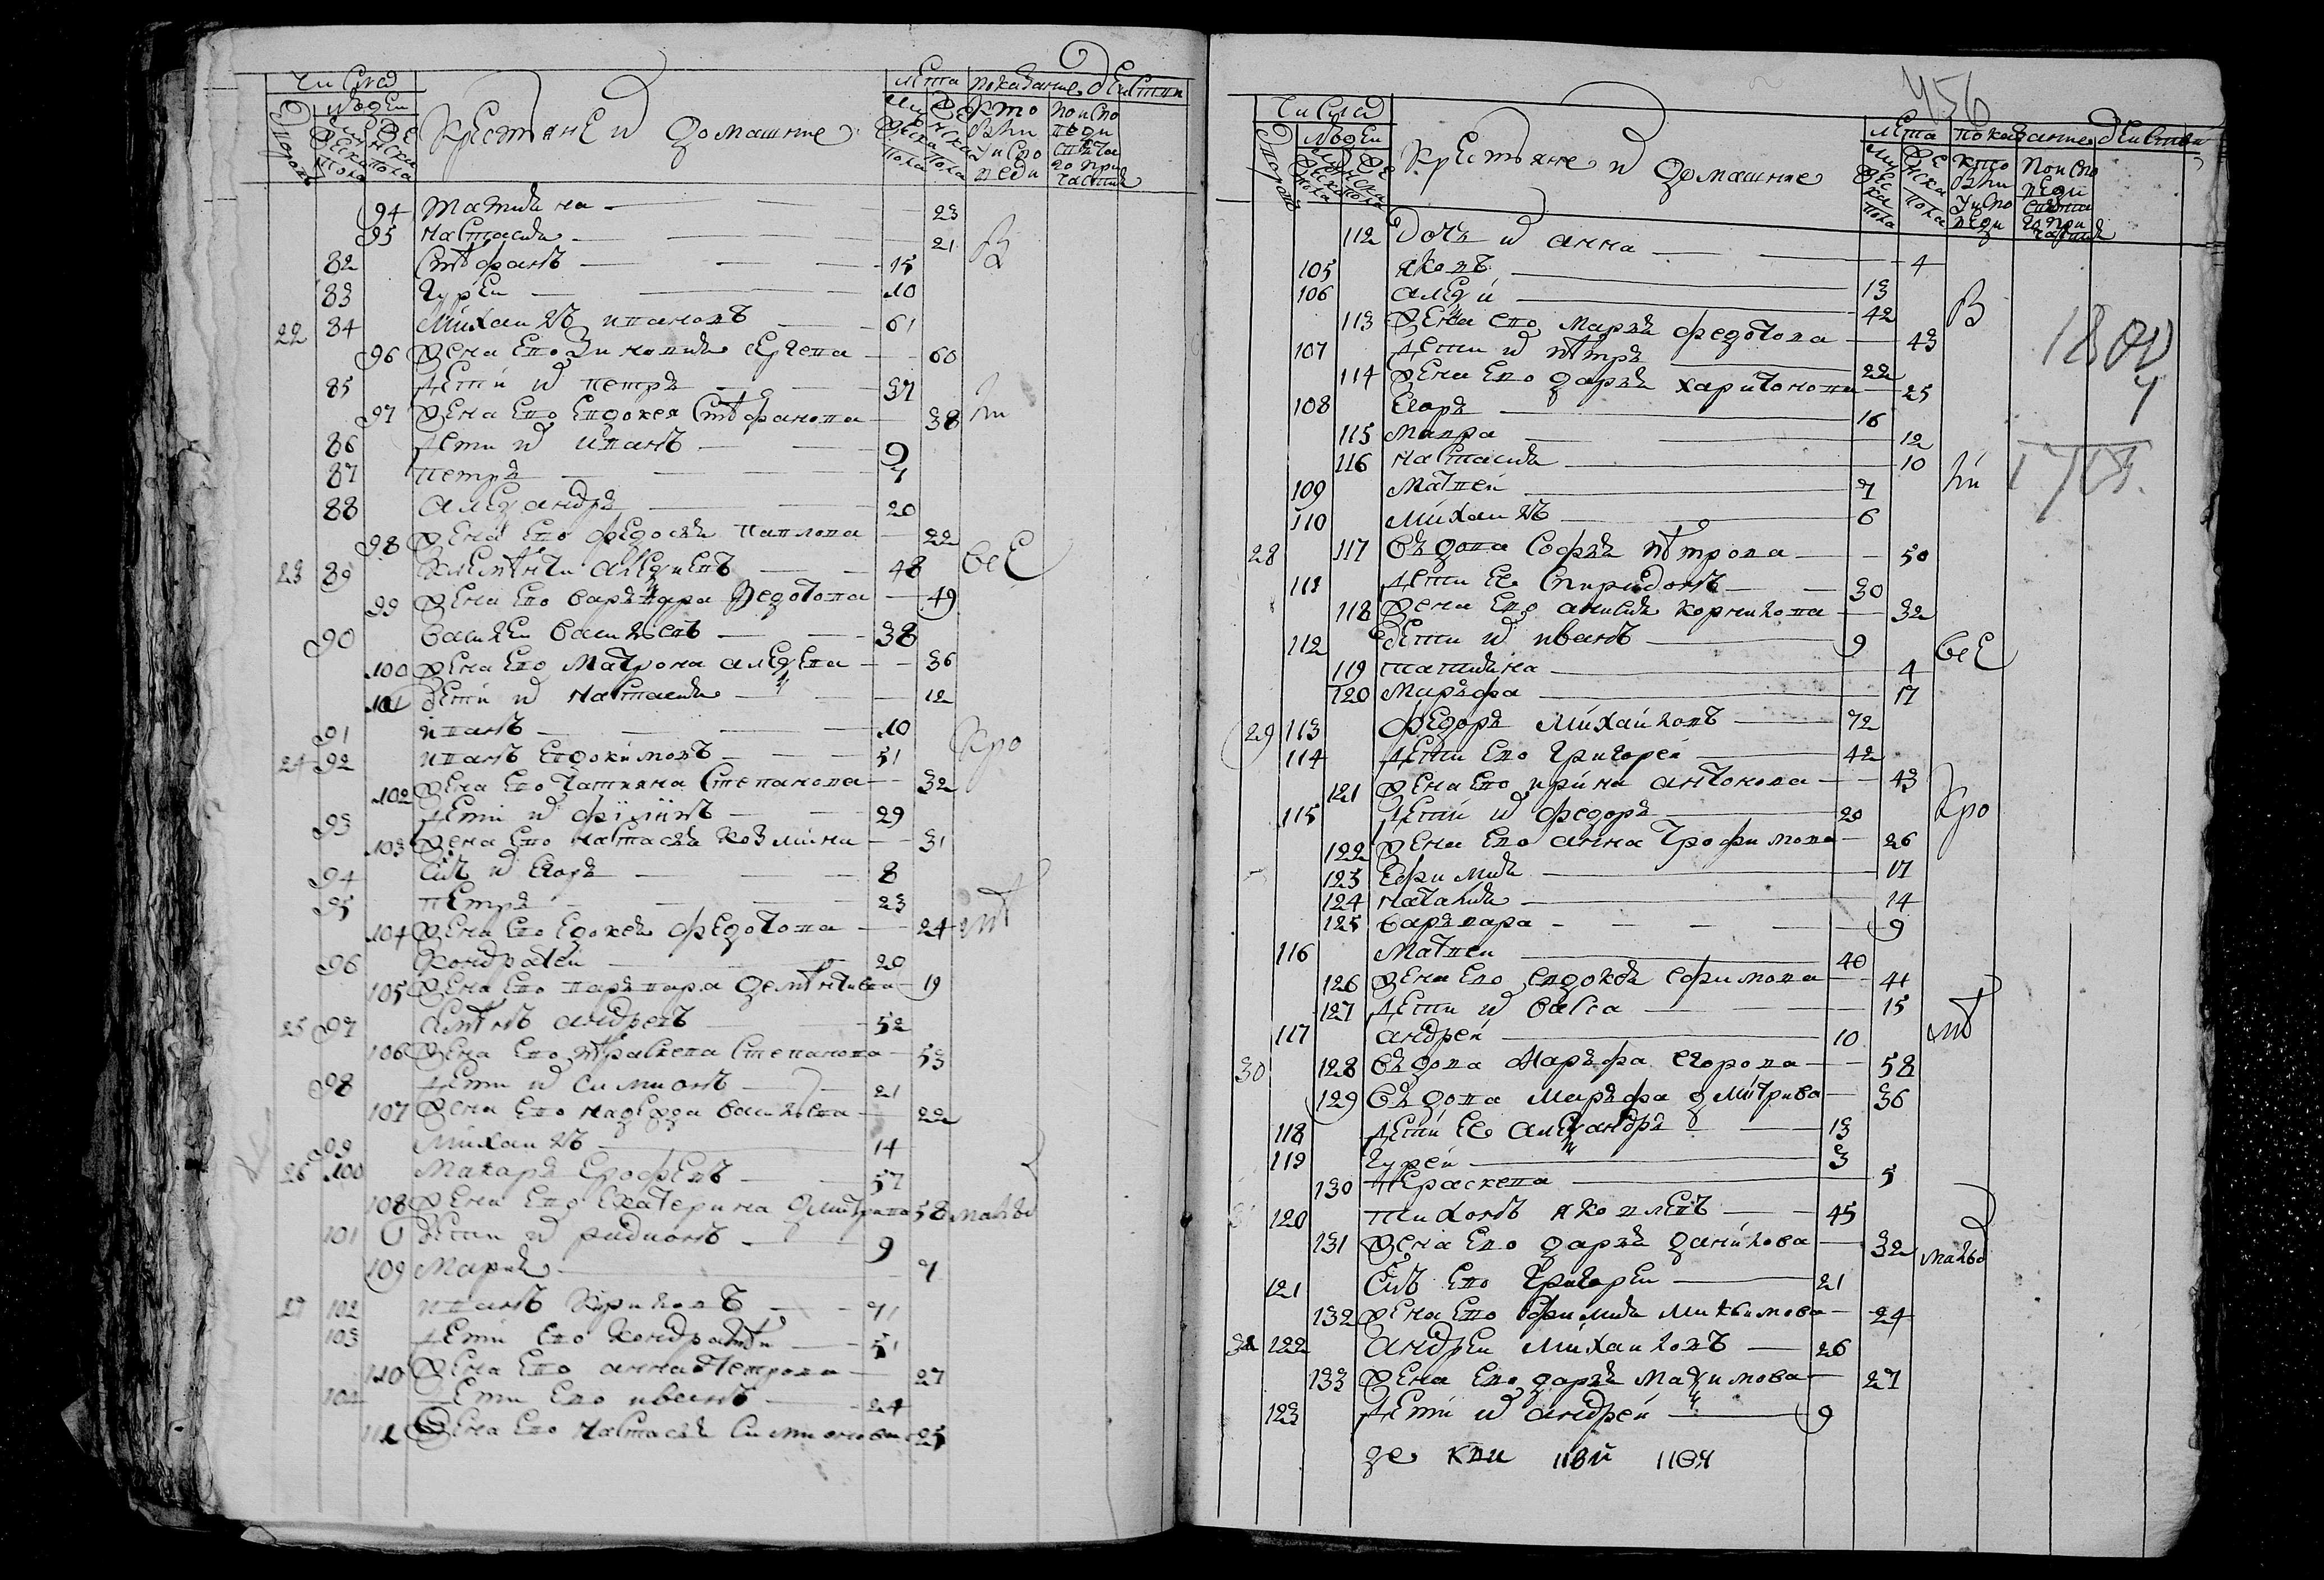 Число
людей
Крестьяне и домашние
лета
показание действи
94 татияна 23
95 настасия 21
82 Стефанъ 15
83 гурей 10
22 84 михаилъ ивановъ 61
96 жена его зиновия сергеева 60
85 дети их петръ 37
97 жена его евдокея Стефанова 38
86 дети их иванъ 9
87 петръ 7
88 алеѯандръ 20
98 жена его федосья павлова 22
23 89 климентей алеѯиевъ 48
99 жена его варъвара Федотова 49
90 василей васильевъ 38
100 жена его матрона алеѯеева 36
101 дети их настасия 12
91 иванъ 10
24 92 иванъ евдокимовъ 51
102 жена его татияна Степанова 32
93 дети их филипъ 29
103 жена его настасья козмина 31
94 Сынъ их егоръ 8
95 петръ 23
104 жена его евдокея федотова 24
96 кондратей 20
105 жена его варъвара дементиева 19
25 97 Семенъ андреевъ 52
106 жена его параскева Степанова 53
98 дети их симионъ 21
107 жена его надежда васильева 22
99 михаилъ 14
26 100 макаръ ерофеевъ 57
108 жена его екатерина дмитрива 58
101 дети их родионъ 9
109 мария 7
27 102 иванъ кириловъ 71
103 дети его кондратей 51
110 жена его анна петрова 27
104 дети его иванъ 24
111 жена его настасья симионова 25
В
ни
все
кро
ме
мало
456
Число
людей
Крестьяне и домашние
лета
показание действи
112 дочь их анна 4
105 яковъ 13
106 алеѯей 42
113 жена его марья федотова 43
107 дети их петръ 22
114 жена его дарья харитонова 25
108 егоръ 16
115 мавра 12
116 настасия 10
109 матвей 7
110 михаилъ 6
28 117 вдова софья петрова 50
111 дети ее Спиридонъ 30
118 жена его анисия корнилова 32
112 дети их иванъ 9
119 татияна 4
120 маръфа 17
29 113 федоръ михайловъ 72
114 дети его григорей 42
121 жена его ирина антонова 43
115 дети их федоръ 20
122 жена его анна трофимова 26
123 ефимия 17
124 наталия 14
125 варъвара 9
116 матвей 40
126 жена его евдокия ефимова 41
127 дети их васса 15
117 андрей 10
30 128 вдова маръфа егорова 58
129 вдова маръфа дмитрива 36
118 дети ее алеѯандръ 13
119 гурей 3
130 параскева 5
31 120 тихонъ яковлевъ 45
131 жена его дарья данилова 32
121 Сынъ его григорей 21
132 жена его ефимия максимова 24
32 122 андрей михайловъ 26
133 жена его дарья маѯимова 27
123 дети их андрей 9
В
ни
все
кро
ме
мало